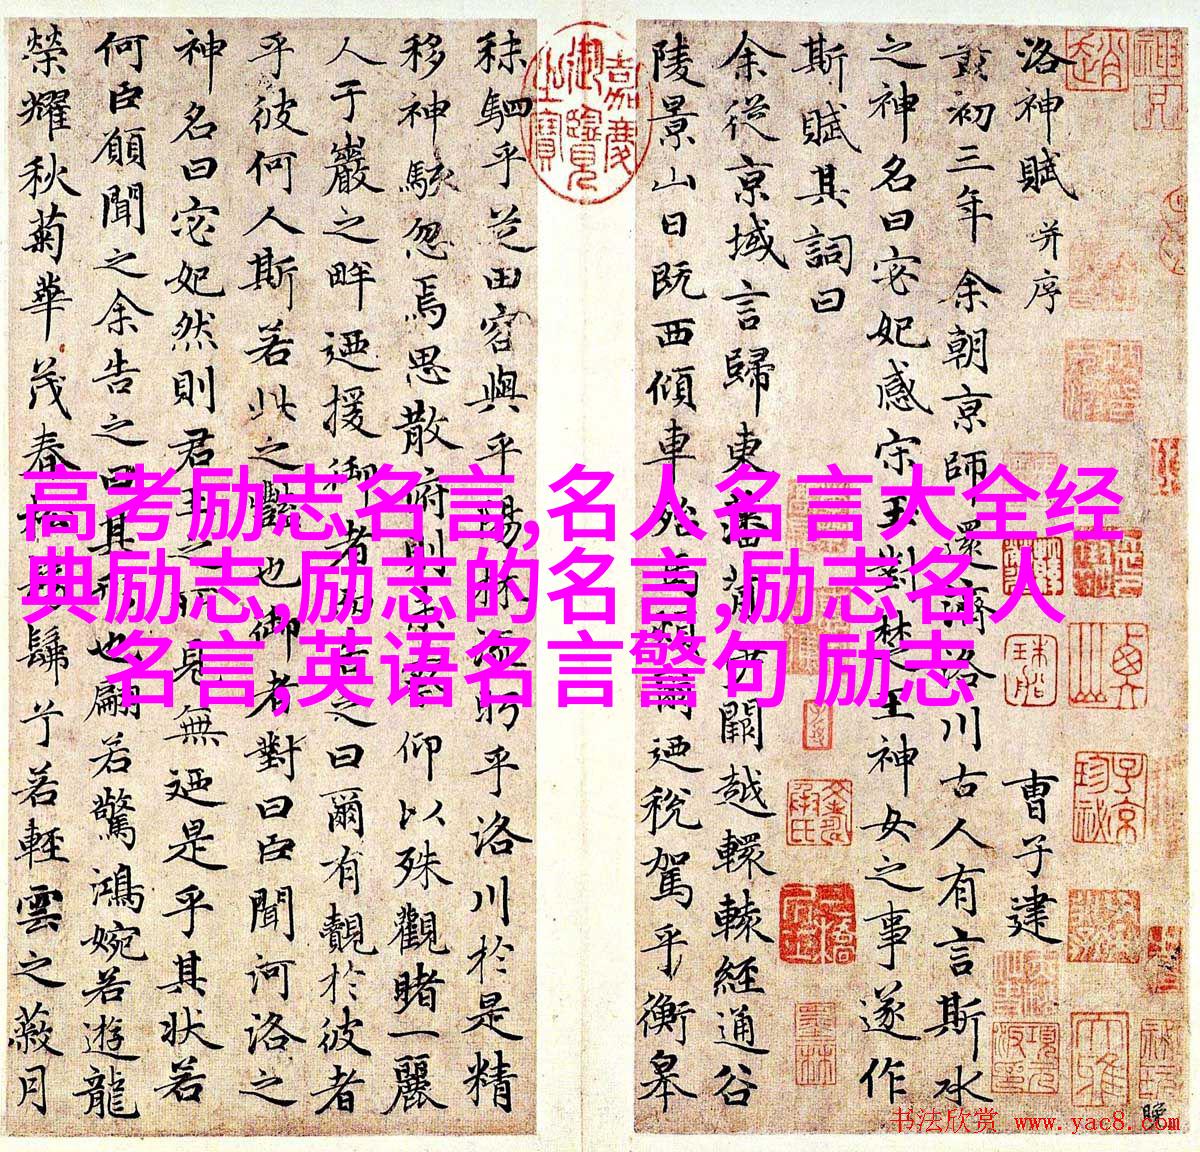 洛神賦 并序 曹子建
黃初三年余朝京師還濟洛川古人有言斯水
之神名曰宓妃感宋玉對楚王神女之事遂作
斯賦其詞曰
余從京域言歸東藩背伊闕越轘轅經通谷
陵景山日既西傾車殆馬煩爾迺稅駕乎衡皋
秣駟乎芝田容與乎陽林流眄乎洛川於是精
移神駭忽焉思散府則未察仰以殊觀睹一麗
人于巖之畔迺援御者而告之曰爾有覿於彼者
乎彼何人斯若此之豔也御者對曰臣聞河洛之
神名曰宓妃然則君王之所見無迺是乎其狀若
何臣願聞之余告之曰其形也翩若驚鴻婉若遊龍
榮耀秋菊華茂春松髣髴兮若輕雲之蔽月
嘉慶御覽之寶
高考励志名言,名人名言大全经
典励志,励志的名言,励志名人
名言,英语名言警句 励志
书法欣赏 www.yac8.com